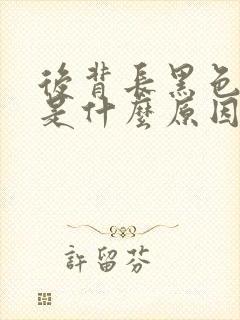 後背長黑色
是什麼原因
許留芬